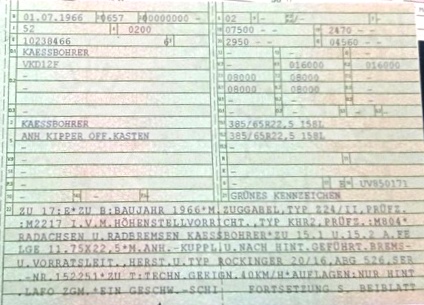 01.07.1966 0657 00000000 - - 02 - -
52 0200 07500 - - 2470 - -
10238466 2950 - - 04560 - -
KAESSBOHRER
VKD12F - 016000 016000
- 08000 08000 -
- 08000 08000 -
KAESSBOHRER 385/65R22,5 158L
ANH KIPPER OFF.KASTEN 385/65R22,5 158L
- UV850171
GRÜNES KENNZEICHEN
ZU 17:E*ZU B:BAUJAHR 1966*M.ZUGGABEL,TYP Z24/II,PRÜFZ.
:M2217 I.V.M.HÖHENSTELLVORRICHT.,TYP KHR2,PRÜFZ.:M804*
RADACHSEN U.RADBREMSEN KAESSBOHRER*ZU 15.1 U.15.2 A.FE
LGE 11.75X22.5*M.ANH.-KUPPL.U.NACH HINT.GEFÜHRT.BREMS-
U.VORRATSLEIT.,HERST.U.TYP ROCKINGER 20/16,ABG 526,SER
.-NR.152251*ZU T:TECHN.GEEIGN.40KM/H*AUFLAGEN:NUR HINT
.LAFO ZGM.*EIN GESCHW.-SCHI FORTSETZUNG S. BEIBLATT